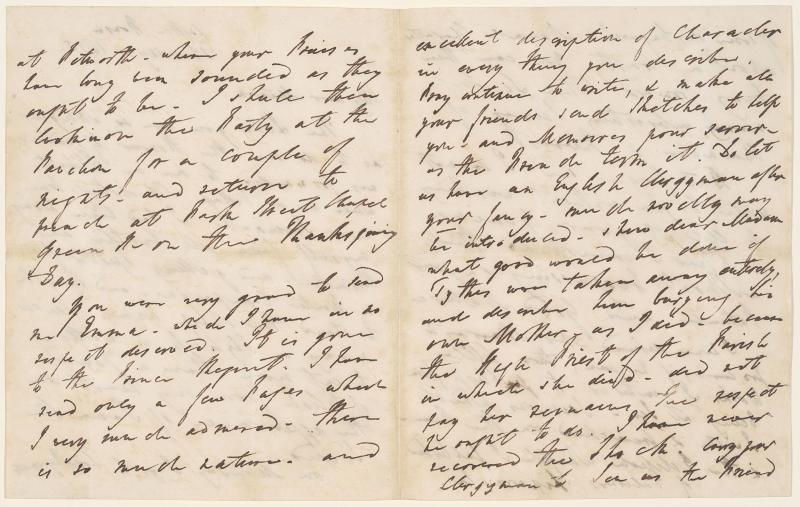 at Petworth - where your Praises
have long been sounded as they
ought to be. I shall then
look in on the Party at the
Pavilion for a couple of
nights - and return to
preach at Park Street Chapel
Green St on the Thanksgiving
Day.
You were very good to send
me Emma - which I have in no
respect deserved. It is gone
to the Prince Regent. I have
read only a few Pages which
I very much admired - there
is so much nature - and
excellent description of Character
in every thing you describe.
Pray continue to write, & make all
your friends send Sketches to help
you - and Memoires pour servir -
as the French term it. Do let
us have an English Clergyman after
your fancy - much novelty may
be introduced - shew dear Madam
what good would be done if
Tythes were taken away entirely,
and describe him burying his
own Mother - as I did - because
the High Priest of the Parish
in which she died - did not
pay her remains the respect
he ought to do. I have never
recovered the Shock. Carry your
Clergyman to Sea as the Friend